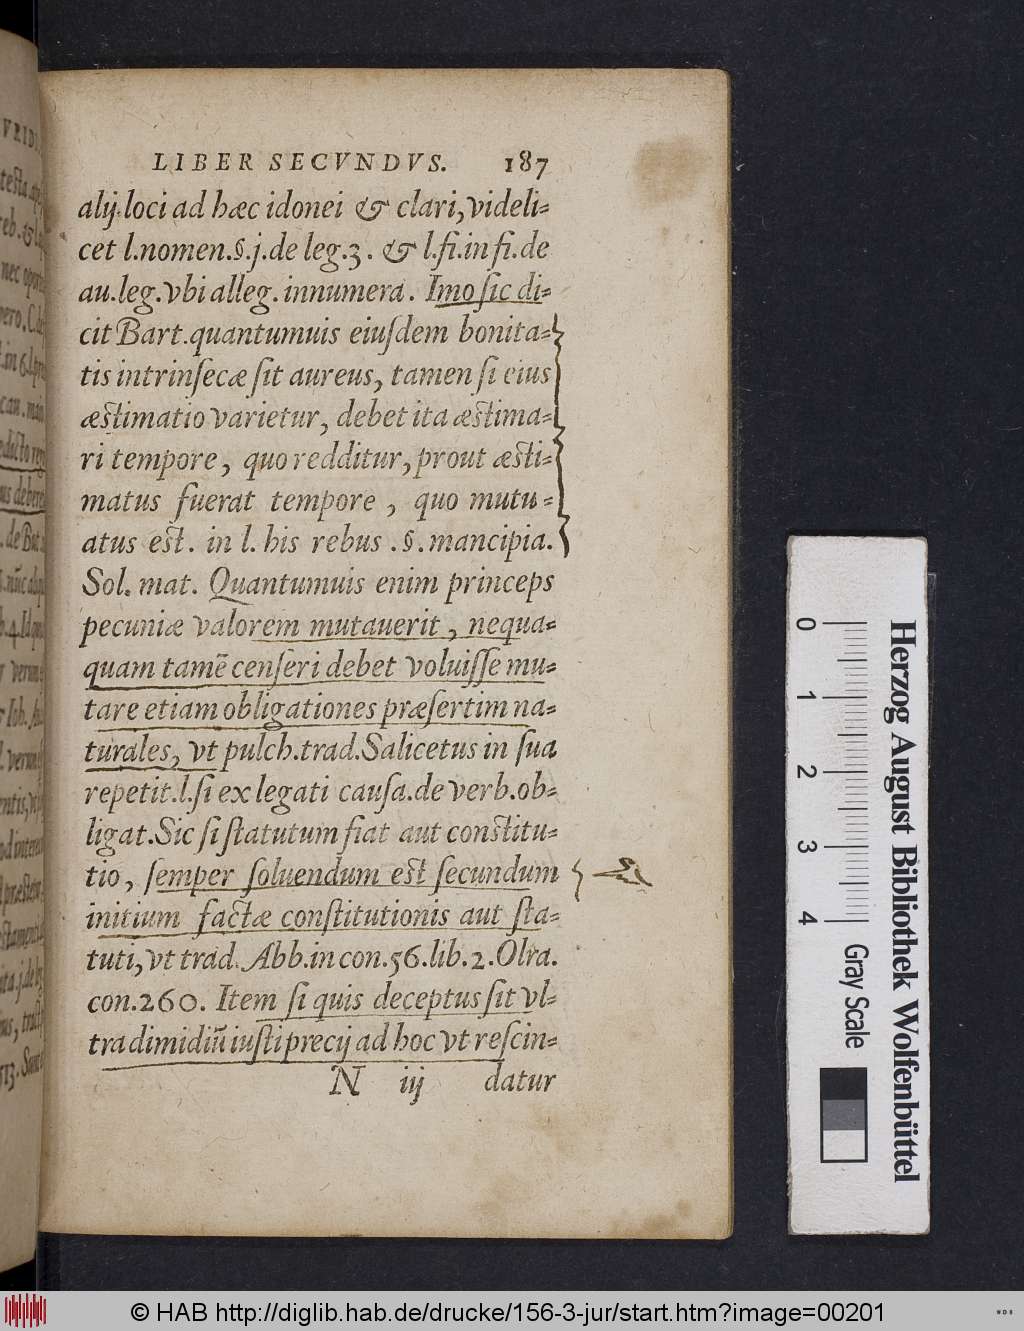 LIBER SECVNDVS. 187
alij loci ad hæc idonei & clari, videli-
cet l.nomen.§.j.de leg.3. & l.fi.in fi.de
au.leg.vbi alleg. innumera. Imo sic di-
cit Bart.quantumuis eiusdem bonita-
tis intrinsecæ sit aureus, tamen si eius
æstimatio varietur, debet ita æstima-
ri tempore, quo redditur, prout æsti-
matus fuerat tempore, quo mutu-
atus est. in l. his rebus .§. mancipia.
Sol. mat. Quantumuis enim princeps
pecuniæ valorem mutauerit, nequa-
quam tamē censeri debet voluisse mu-
tare etiam obligationes præsertim na-
turales, vt pulch.trad.Salicetus in sua
repetit.l.si ex legati causa.de verb.ob-
ligat.Sic si statutum fiat aut constitu-
tio, semper soluendum est secundum
initium factæ constitutionis aut sta-
tuti, vt trad. Abb.in con.56.lib.2.Olra.
con.260. Item si quis deceptus sit vl-
tra dimidiū iusti precij ad hoc vt rescin-
N iij datur
0 1 2 3 4
Gray Scale
Herzog August Bibliothek Wolfenbüttel
© HAB http://diglib.hab.de/drucke/156-3-jur/start.htm?image=00201